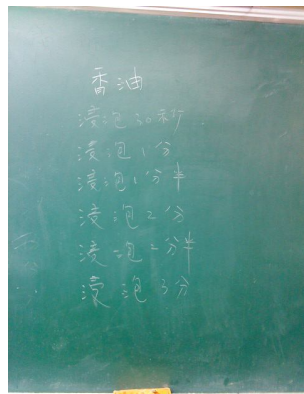 香油
浸泡30秒
浸泡1分
浸泡1分半
浸泡2分
浸泡2分半
浸泡3分